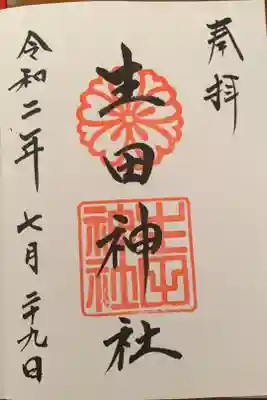 奉拝
生田神社
生田神社
令和二年七月二十九日